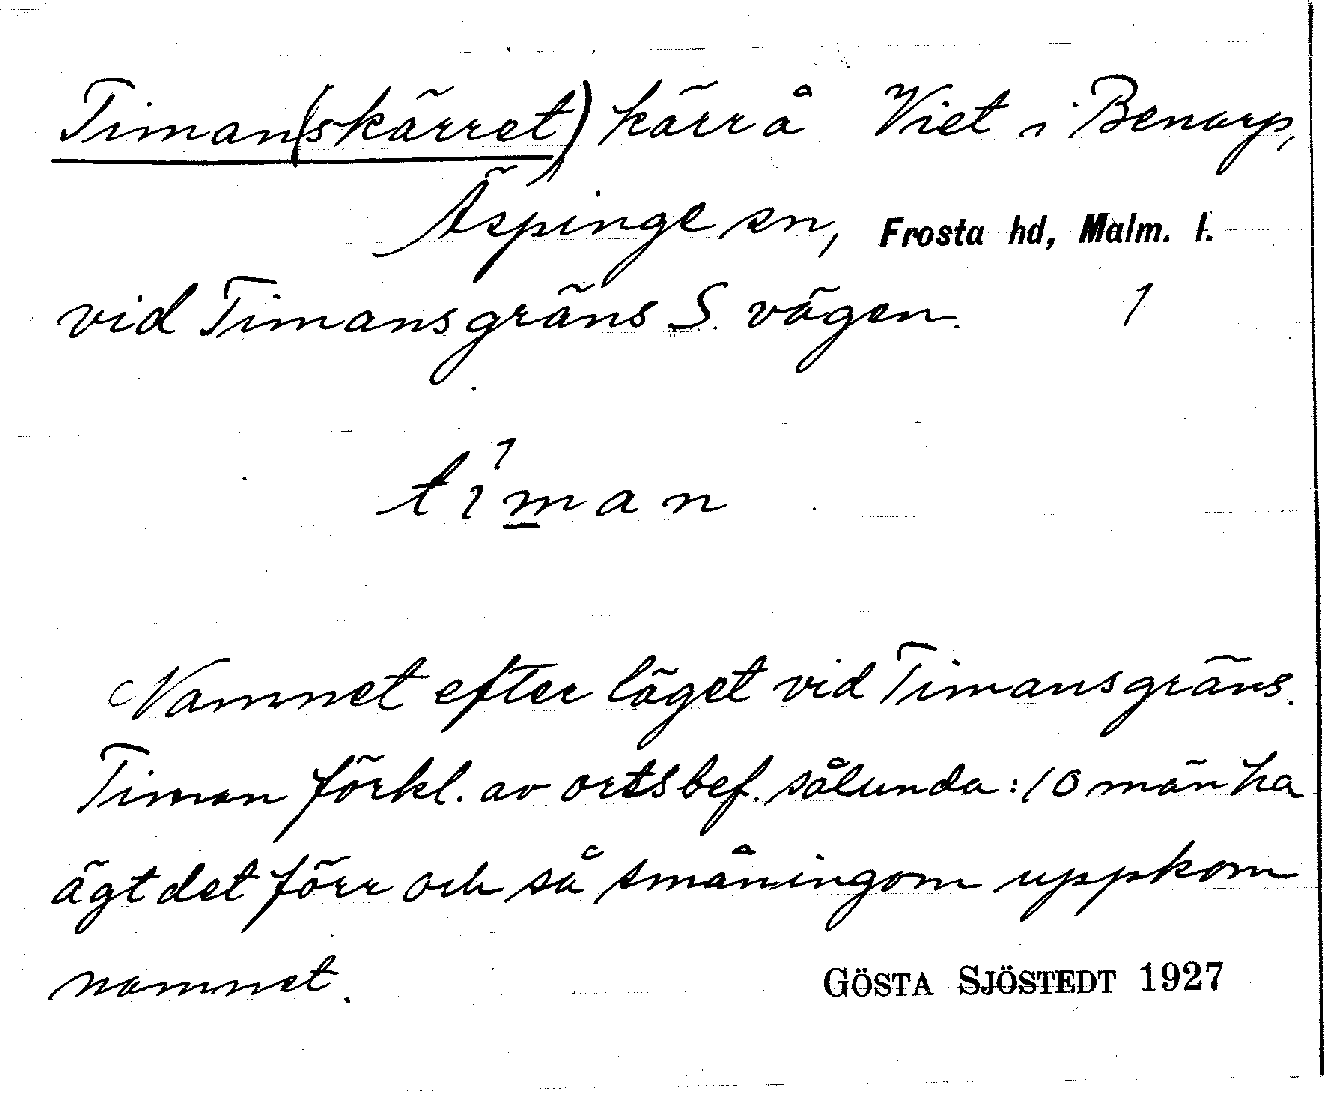 Timan(skärret) kärr å Viet i Benarp,
Äspinge sn, Frosta hd, Malm. l.
vid Timansgräns S. vägen. 1
tíman
Namnet efter läget vid Timansgräns.
Timan förkl. av ortsbef. sålunda: 10 män ha
ägt det förr och så småningom uppkom
namnet.
GÖSTA SJÖSTEDT 1927